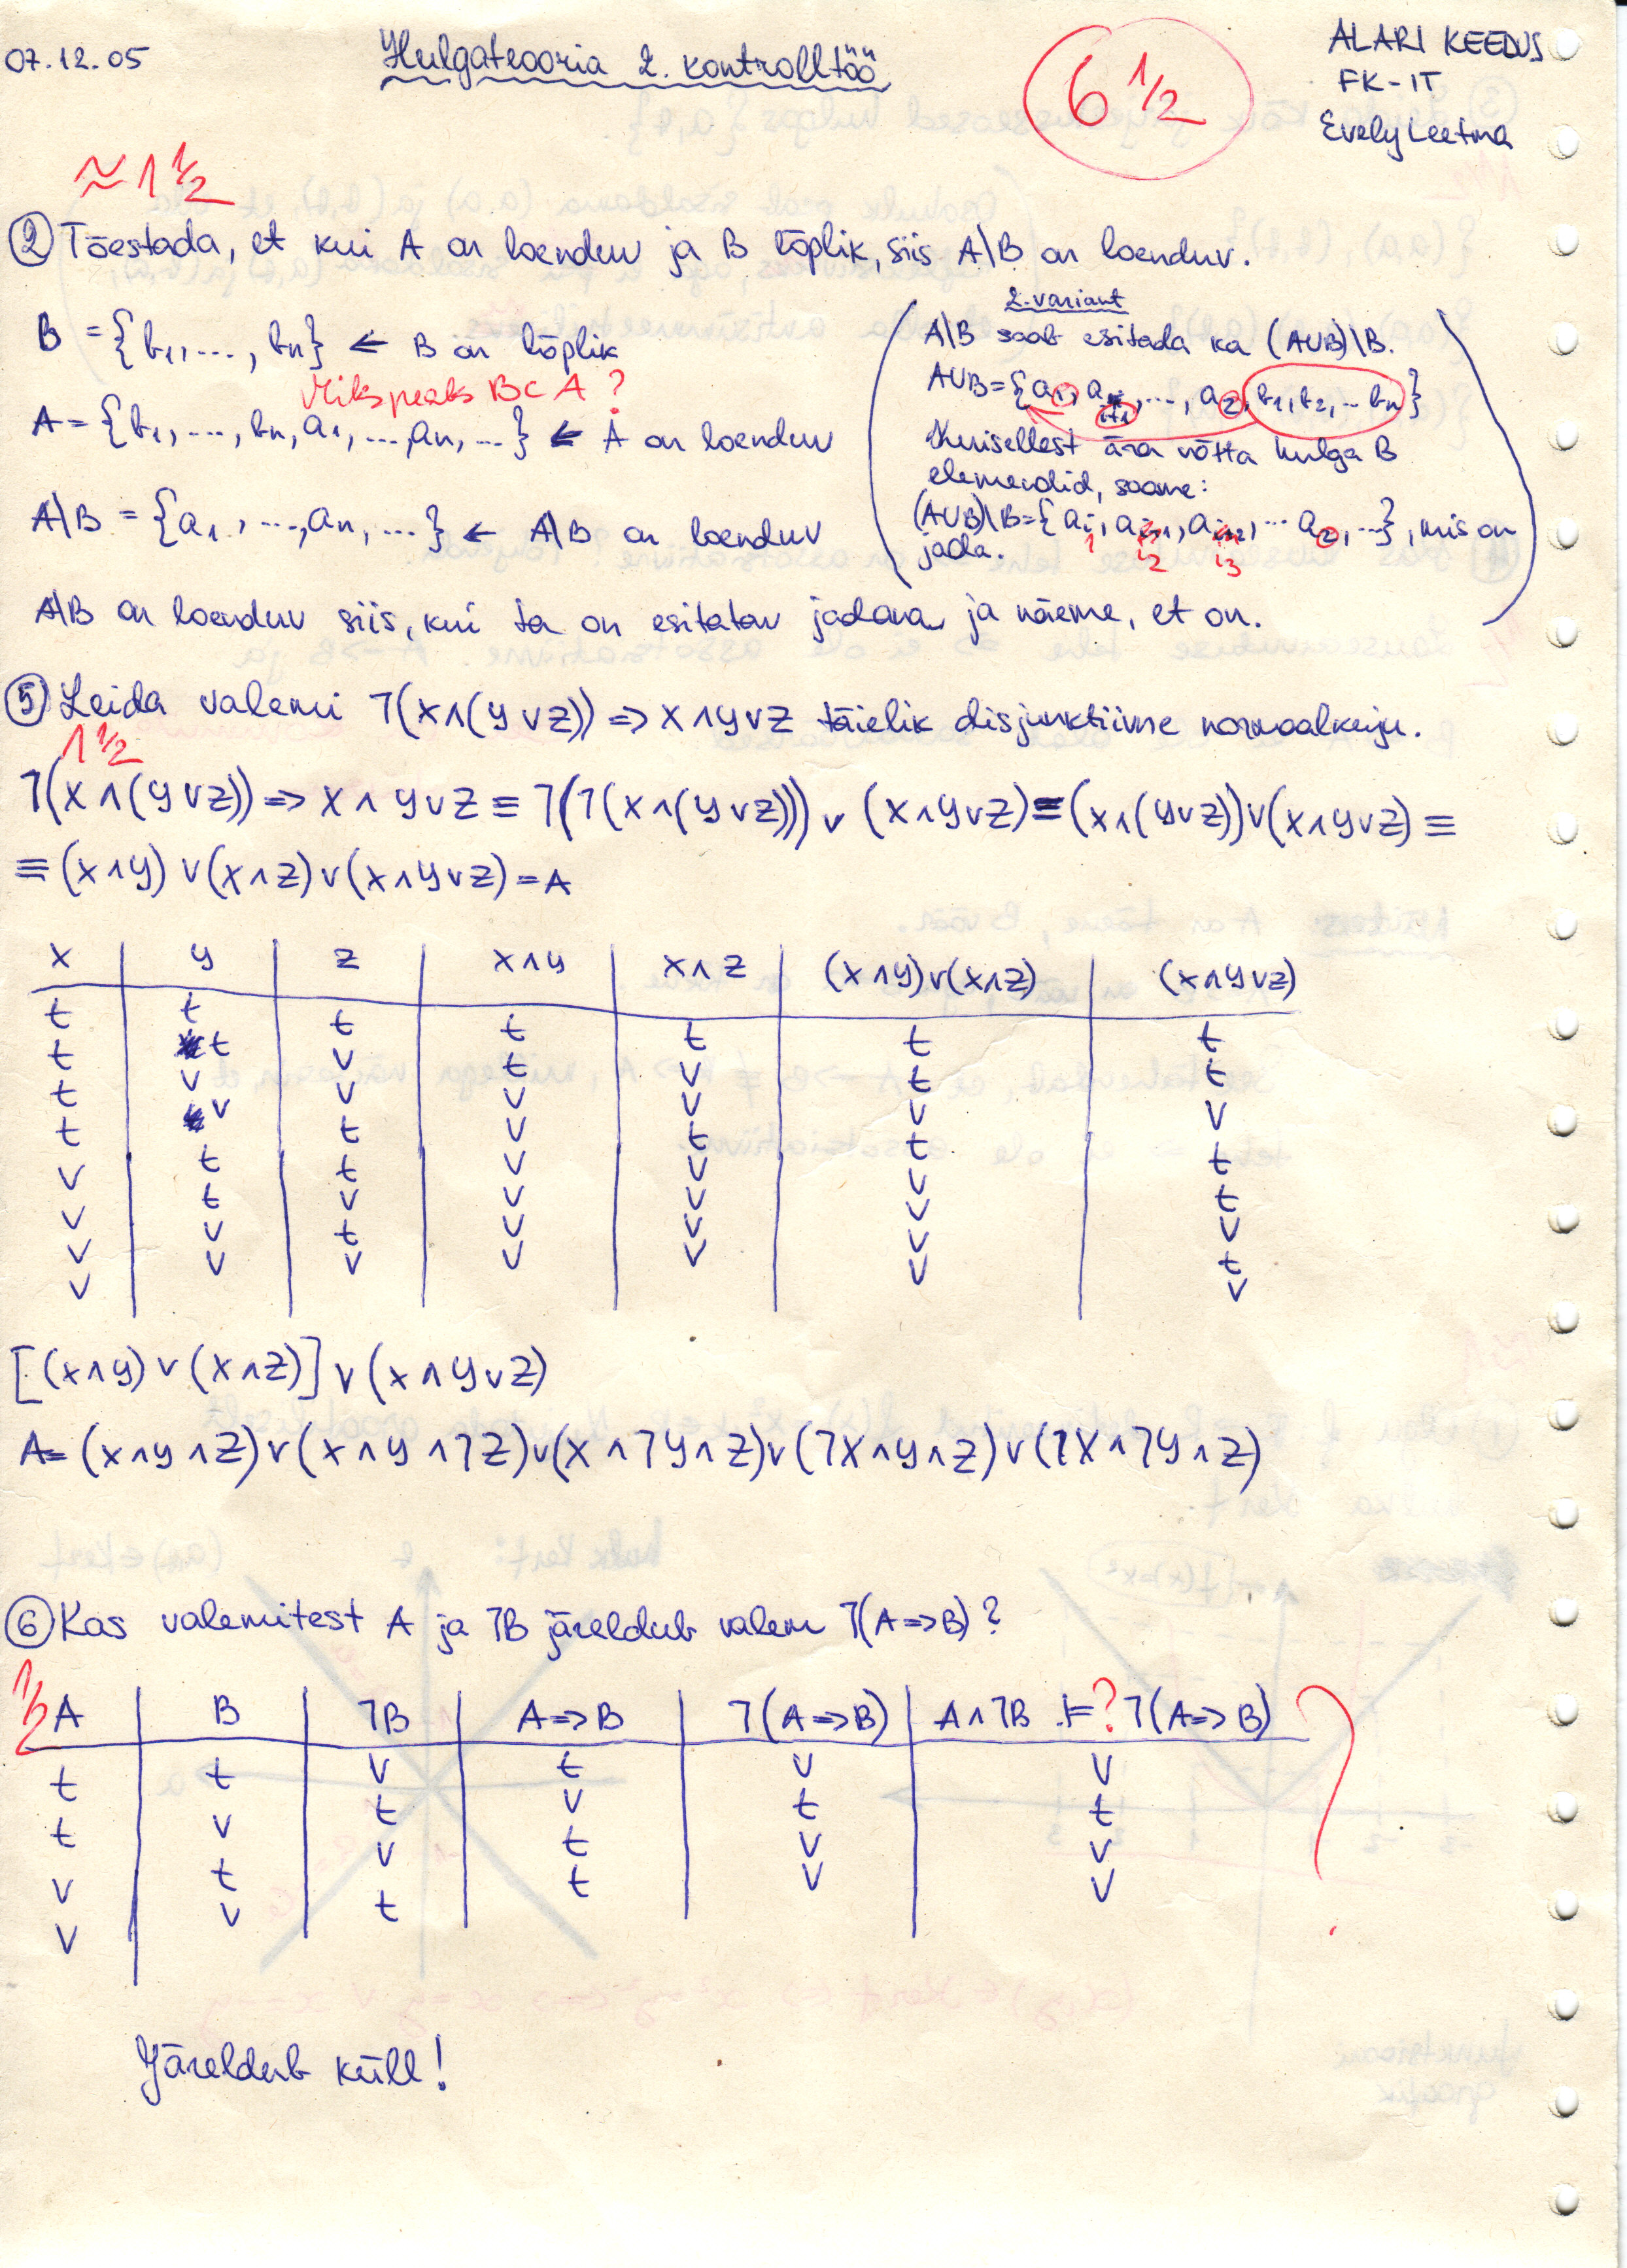 07.12.05
Hulgateooria 2. kontrolltöö
6 1/2
ALARI KEEDUS
FK-IT
Evely Leetma
≈1 1/2
② Tõestada, et kui A on loenduv ja B lõplik, siis A\B on loenduv.
B = {b₁, ..., bn} ← B on lõplik
Miks peaks B⊂A ?
A = {b₁, ..., bn, a₁, ..., an, ...} ← A on loenduv
A\B = {a₁, ..., an, ...} ← A\B on loenduv
2. variant
A\B saab esitada ka (A∪B)\B.
A∪B = {a₁, a i+1, ..., a₂, b₁, b₂, ... bn}
Kui sellest ära võtta hulga B
elemendid, saame:
(A∪B)\B = {ai, ai+1, ai+2, ... a₂, ...}, mis on
1 i₂ i₃
jada.
A\B on loenduv siis, kui ta on esitatav jadana ja näeme, et on.
⑤ Leida valemi ⌉(x∧(y∨z)) => x∧y∨z täielik disjunktiivne normaalkuju.
1 1/2
⌉(x∧(y∨z)) => x∧y∨z ≡ ⌉(⌉(x∧(y∨z))) ∨ (x∧y∨z) ≡ (x∧(y∨z))∨(x∧y∨z) ≡
≡ (x∧y) ∨ (x∧z) ∨ (x∧y∨z) = A
x y z x∧y x∧z (x∧y)∨(x∧z) (x∧y∨z)
t t t t t t t
t t v t v t t
t v v v v v v
t v t v t t t
v t t v v v t
v t v v v v v
v v t v v v t
v v v v v v v
[(x∧y) ∨ (x∧z)] ∨ (x∧y∨z)
A = (x∧y∧z) ∨ (x∧y∧⌉z) ∨ (x∧⌉y∧z) ∨ (⌉x∧y∧z) ∨ (⌉x∧⌉y∧z)
⑥ Kas valemitest A ja ⌉B järeldub valem ⌉(A=>B)?
1/2
A B ⌉B A=>B ⌉(A=>B) A∧⌉B ⊨? ⌉(A=>B) ?
t t v t v v
t v t v t t
v t v t v v
v v t t v v
Järeldub küll!